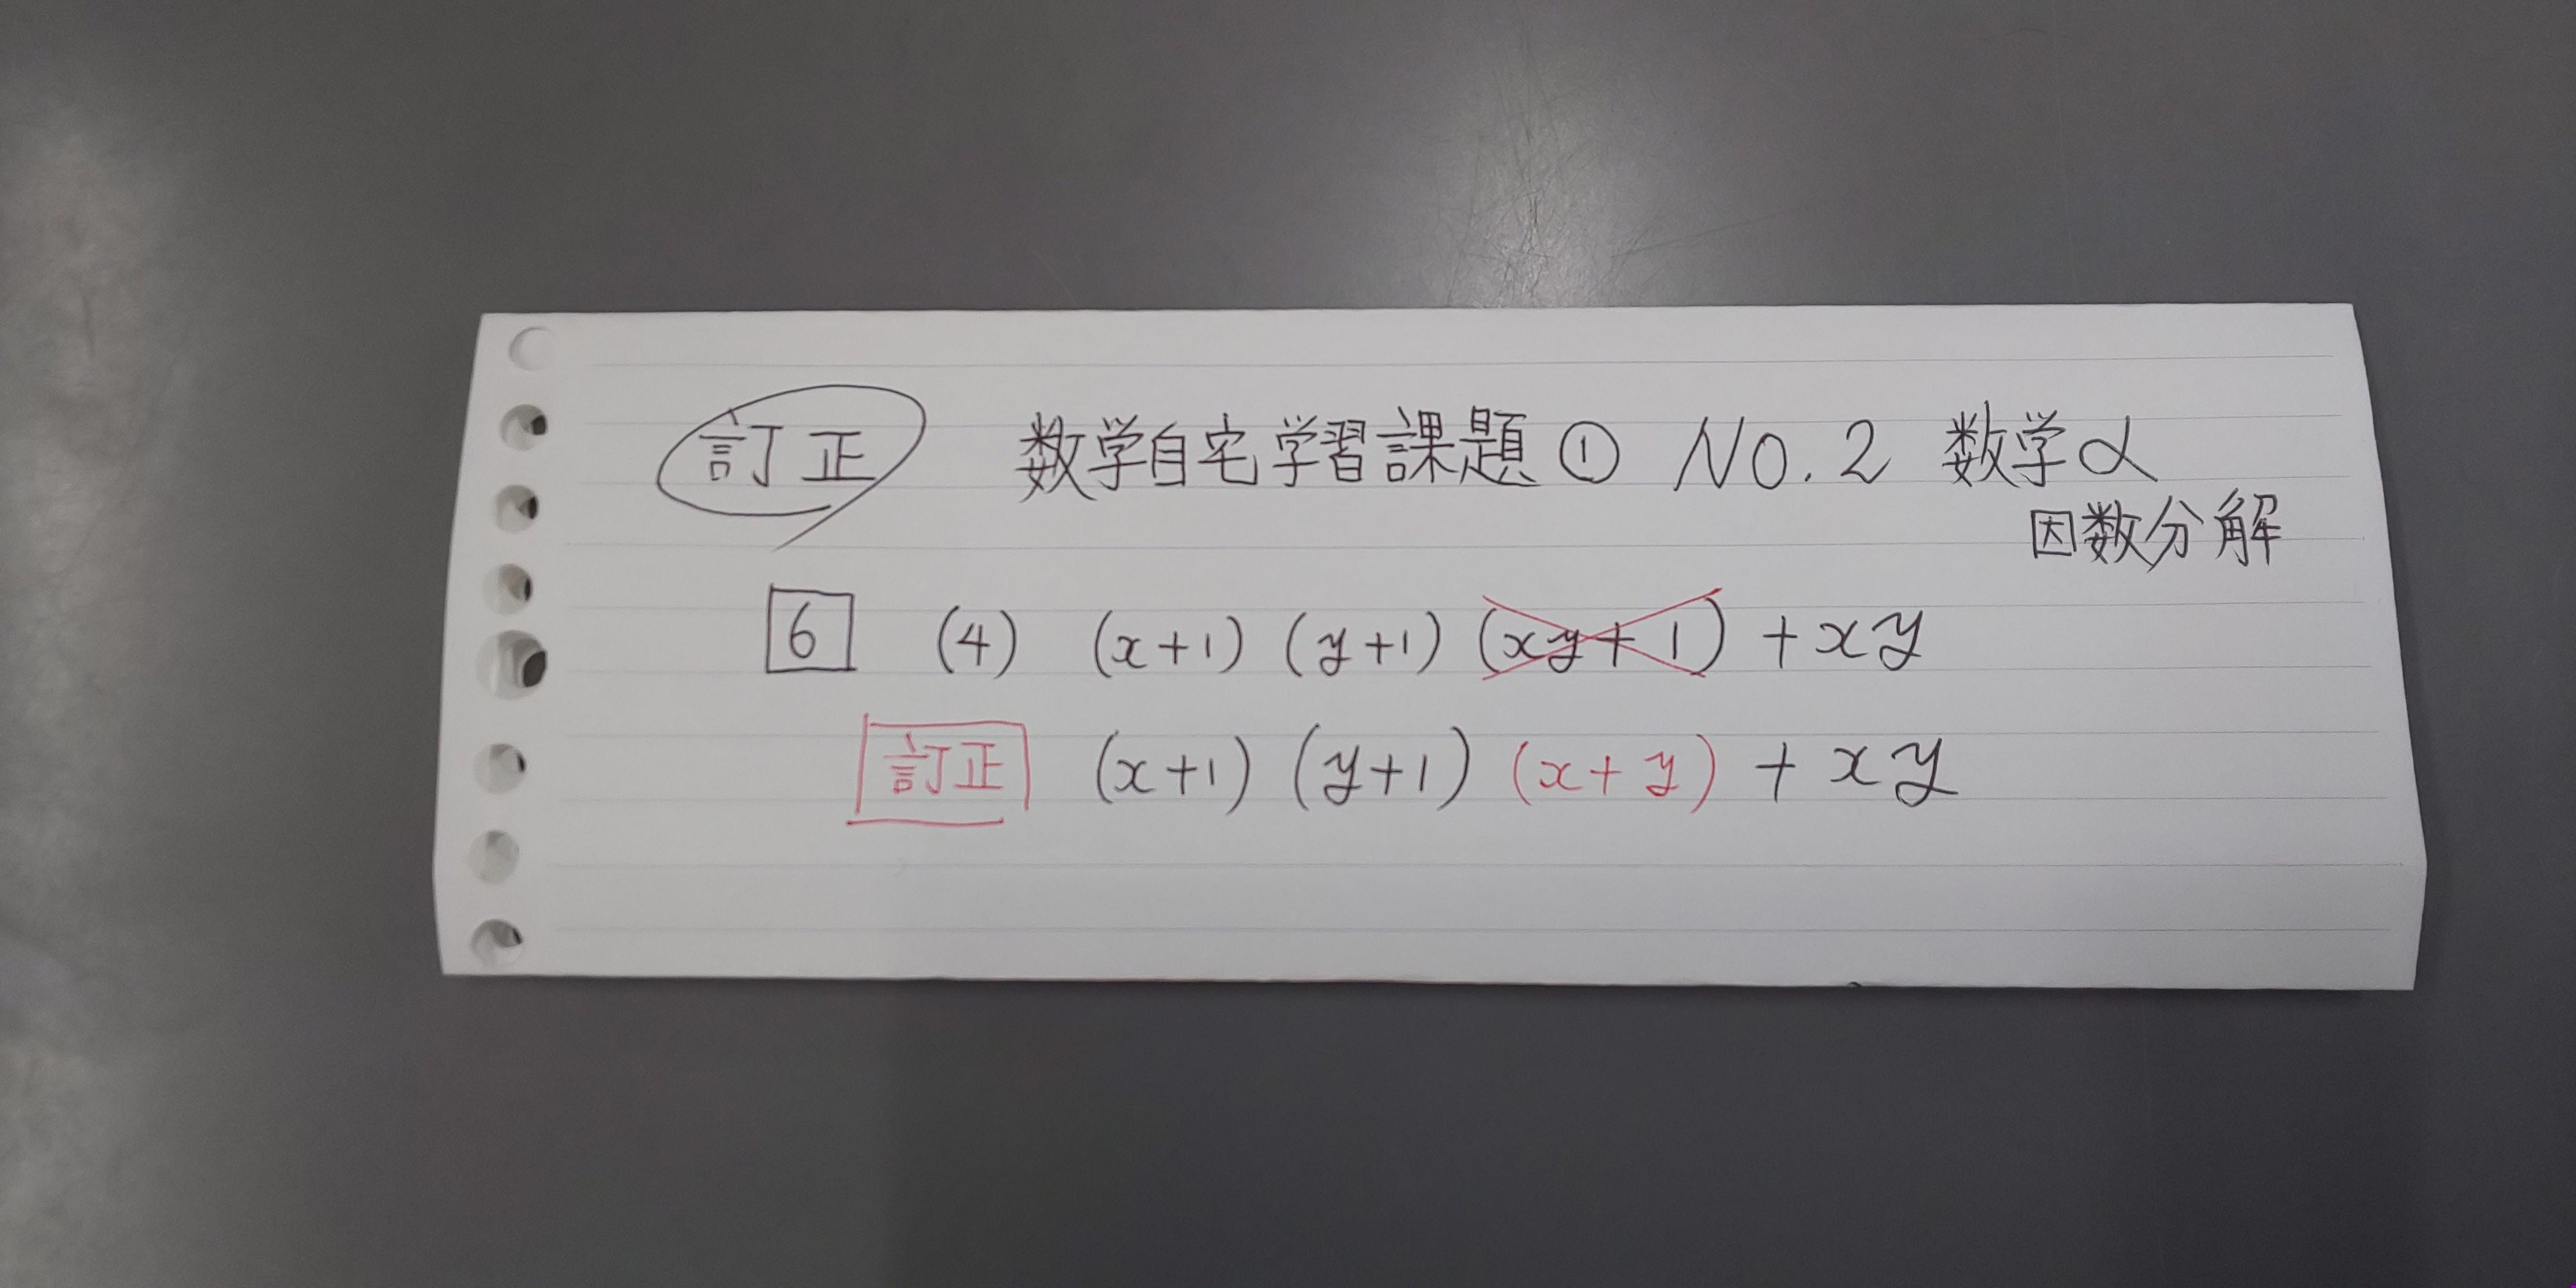 訂正 数学自宅学習課題① NO.2 数学α
因数分解
6 (4) (x+1)(y+1)(xy+1)+xy
訂正 (x+1)(y+1)(x+y)+xy